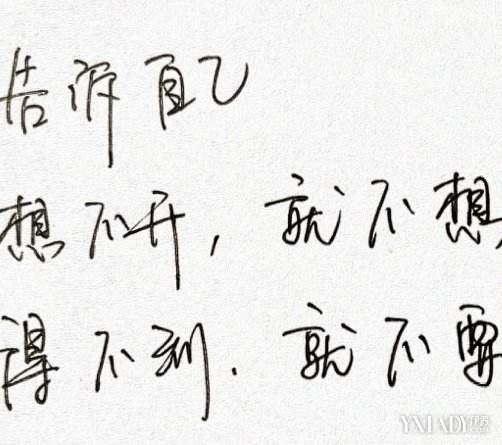 告诉自己
想不开，就不想
得不到.就不要
YXLADY.COM